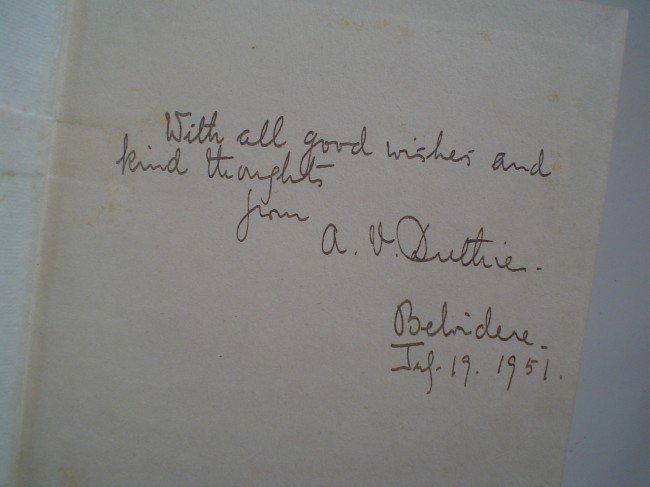 With all good wishes and
kind thoughts
from
A. V. Duthie.
Belvidere.
July. 19. 1951.